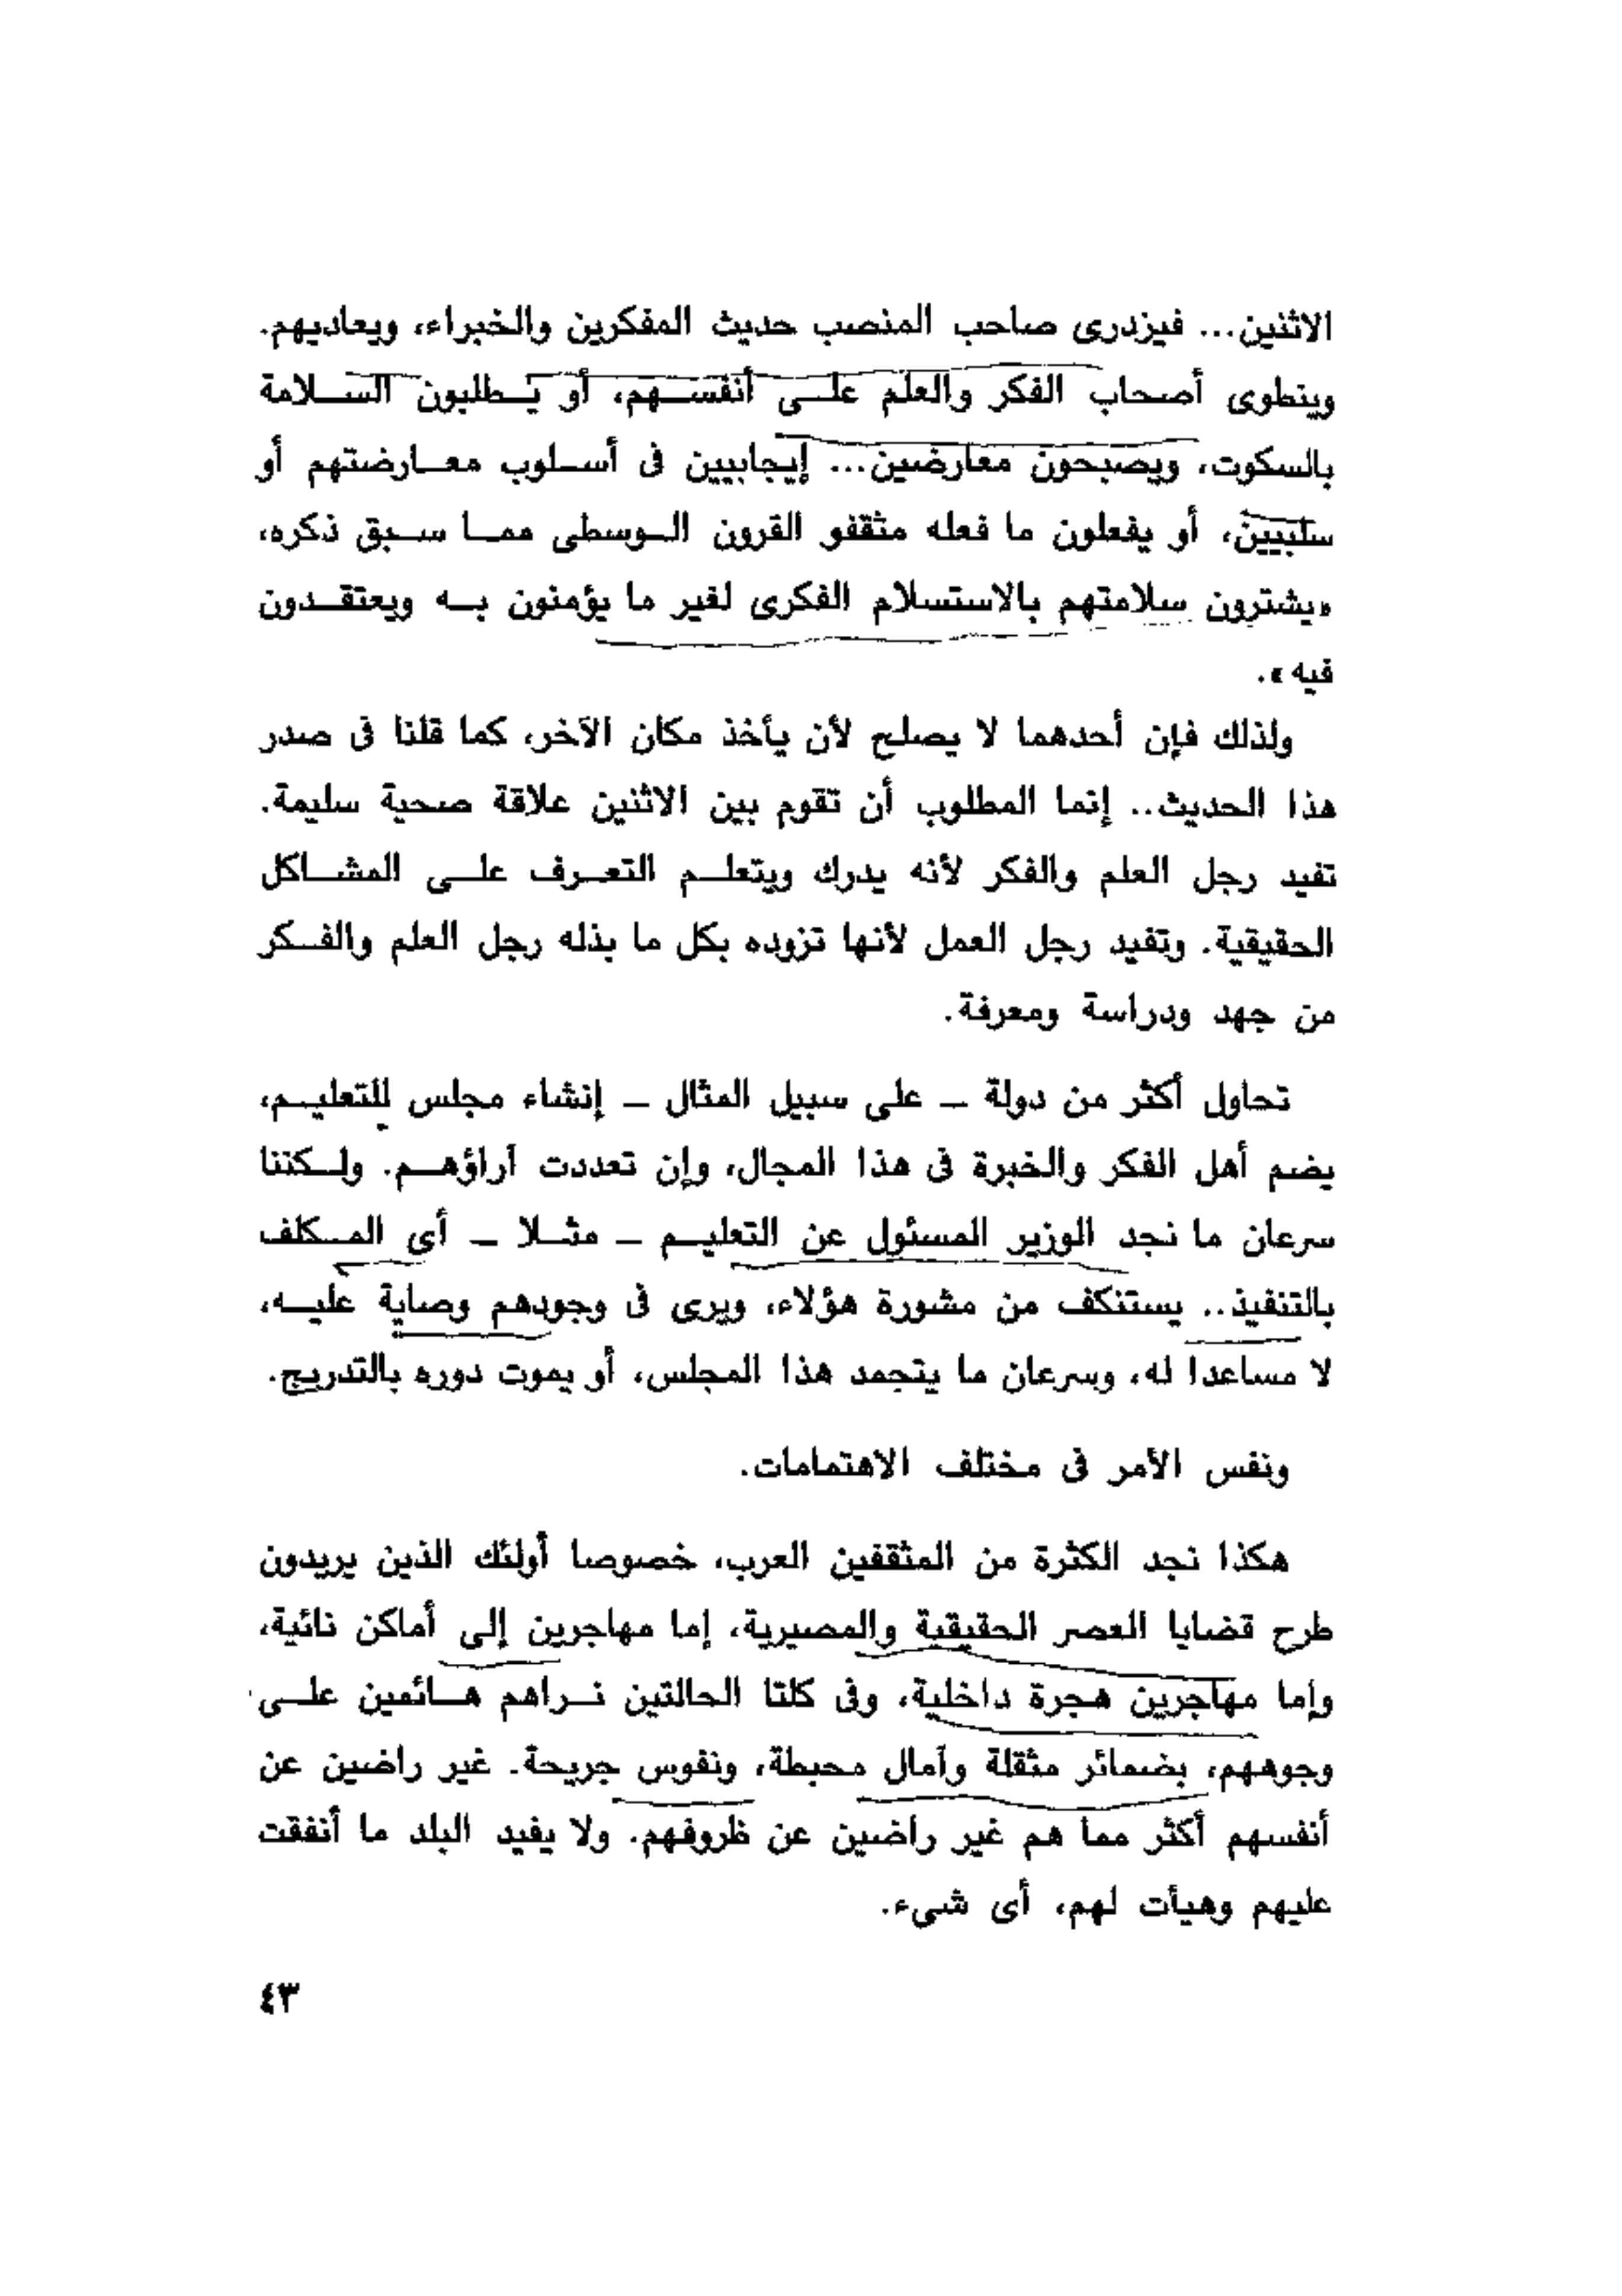 الاثنين... فيزدرى صاحب المنصب حديث المفكرين والخبراء، ويعاديهم.
وينطوى أصحاب الفكر والعلم على أنفسهم، أو يطلبون السلامة
بالسكوت، ويصبحون معارضين... إيجابيين فى أسلوب معارضتهم أو
سلبيين، أو يفعلون ما فعله مثقفو القرون الوسطى مما سبق ذكره،
«يشترون سلامتهم بالاستسلام الفكرى لغير ما يؤمنون به ويعتقدون
فيه».
ولذلك فإن أحدهما لا يصلح لأن يأخذ مكان الآخر، كما قلنا فى صدر
هذا الحديث.. إنما المطلوب أن تقوم بين الاثنين علاقة صحية سليمة.
تفيد رجل العلم والفكر لأنه يدرك ويتعلم التعرف على المشاكل
الحقيقية. وتفيد رجل العمل لأنها تزوده بكل ما بذله رجل العلم والفكر
من جهد ودراسة ومعرفة.
تحاول أكثر من دولة – على سبيل المثال – إنشاء مجلس للتعليم،
يضم أهل الفكر والخبرة فى هذا المجال، وإن تعددت آراؤهم. ولكننا
سرعان ما نجد الوزير المسئول عن التعليم – مثلا – أى المكلف
بالتنفيذ.. يستنكف من مشورة هؤلاء، ويرى فى وجودهم وصاية عليه،
لا مساعدا له، وسرعان ما يتجمد هذا المجلس، أو يموت دوره بالتدريج.
ونفس الأمر فى مختلف الاهتمامات.
هكذا نجد الكثرة من المثقفين العرب، خصوصا أولئك الذين يريدون
طرح قضايا العصر الحقيقية والمصيرية، إما مهاجرين إلى أماكن نائية،
وإما مهاجرين هجرة داخلية، وفى كلتا الحالتين نراهم هائمين على
وجوههم، بضمائر مثقلة وآمال محبطة، ونفوس جريحة. غير راضين عن
أنفسهم أكثر مما هم غير راضين عن ظروفهم. ولا يفيد البلد ما أنفقت
عليهم وهيأت لهم، أى شىء.
٤٣